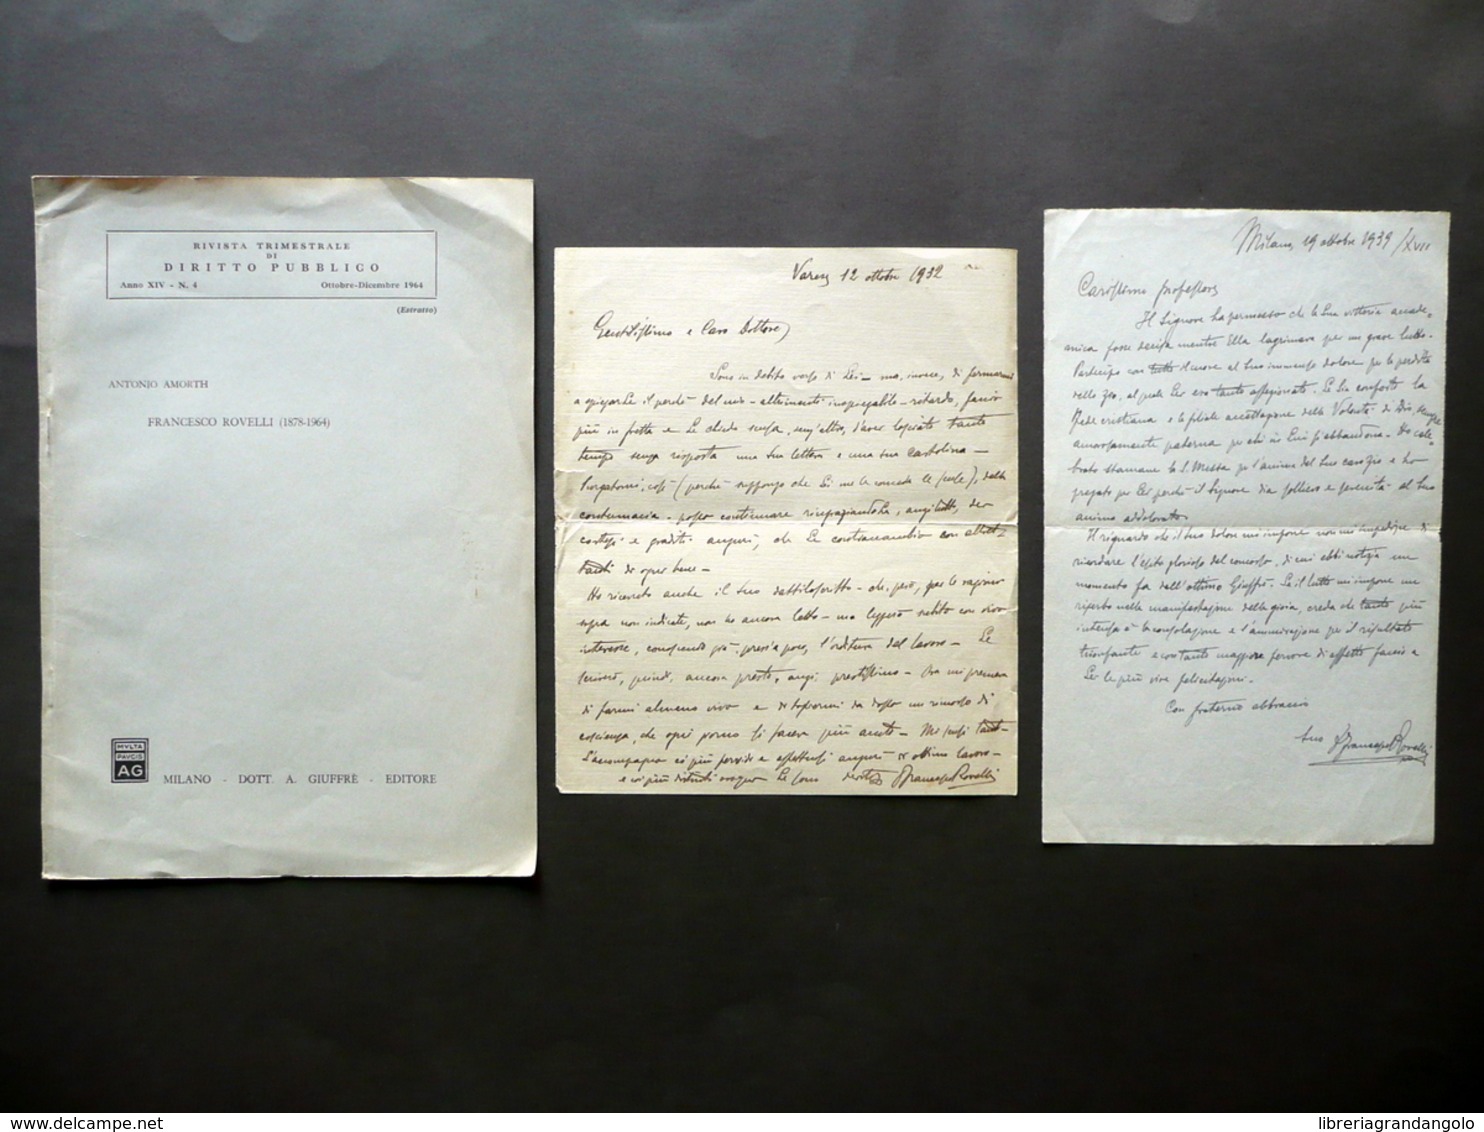 RIVISTA TRIMESTRALE
DI
DIRITTO PUBBLICO
Anno XIV - N. 4 Ottobre-Dicembre 1964
(Estratto)
ANTONIO AMORTH
FRANCESCO ROVELLI (1878-1964)
MVLTA
PAVCIS
AG
MILANO - DOTT. A. GIUFFRÈ - EDITORE
Varese 12 ottobre 1932
Gentilissimo e Caro Dottore,
Sono in debito verso di Lei - ma, invece, di fermarmi
a spiegarLe il perchè del mio - altrimenti inspiegabile - ritardo, faccio
più in fretta e Le chiedo scusa, senz'altro, d'aver lasciato tanto
tempo senza risposta una Sua lettera e una Sua cartolina -
Purgatomi, così (perchè suppongo che Lei me le conceda le scuse), della
contumacia - posso continuare ringraziandoLa, anzitutto, dei
cortesi e graditi auguri, che Le contraccambio con
di ogni bene -
Ho ricevuto anche il Suo dattiloscritto - che, però, per le ragioni
sopra non indicate, non ho ancora letto - ma leggerò subito con vivo
interesse, conoscendo già, presso a poco, l'orditura del lavoro - Le
scriverò, quindi, ancora presto, anzi, prestissimo - Ora mi premeva
di farmi almeno vivo e di togliermi da dosso un rimorso di
coscienza, che ogni giorno si faceva più acuto - Mi scusi
L'accompagno coi più fervidi e affettuosi auguri di ottimo lavoro -
e coi più distinti ossequi Le sono devotissimo Francesco Rovelli
Milano 19 ottobre 1939/XVII
Carissimo professore,
Il Signore ha permesso che la Sua vittoria accade-
mica fosse decisa mentre Ella lagrimava per un grave lutto.
Partecipo con tutto il cuore al Suo immenso dolore per la perdita
dello Zio, al quale Lei era tanto affezionato. Le sia conforto la
Fede cristiana e la filiale accettazione della Volontà di Dio, sempre
amorosamente paterna per chi in Lui s'abbandona. Ho cele-
brato stamane la S. Messa per l'anima del Suo caro Zio e ho
pregato per Lei perchè il Signore dia sollievo e serenità al Suo
animo addolorato.
Il riguardo che il Suo dolore mi impone non mi impedisce di
ricordare l'esito glorioso del concorso, di cui ebbi notizia un
momento fa dall'ottimo Giuffrè. Se il lutto mi impone un
riserbo nelle manifestazioni della gioia, creda che tanto più
intensa è la consolazione e l'ammirazione per il risultato
trionfante e con tanto maggiore fervore di affetto faccio a
Lei le più vive felicitazioni.
Con fraterno abbraccio
Suo Francesco Rovelli
libreriagrandangolo
delcampe.net